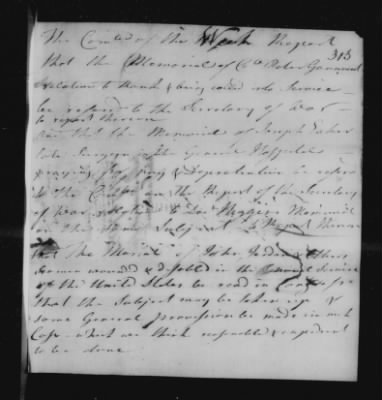 The Comtee of the Week Report
313
that the Memorial of Peter
relative to rank & being called into Service
be referred to the Secretary of War —
to report thereon
that the Memorial of Joseph
late Surgeon in the General Hospitals
praying for pay & Depreciation be referred
to the on the Report of the Secretary
of War relative to Memorial
on the same Subject to Report thereon
that the Memorial of John Jordan & others
Seamen wounded & disabled in the Service
of the United States be read in Congress
that the Subject may be taken up &
some General provision be made in such
Cases which we think reasonable & expedient
to be done